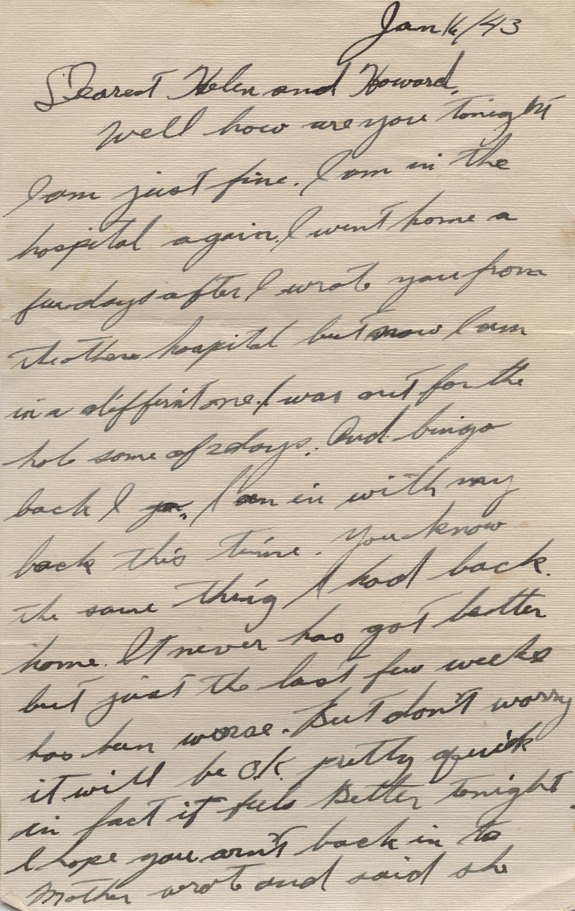 Jan 16/43
Dearest Helen and Howard.
Well how are you tonight
I am just fine. I am in the
hospital again. I went home a
few days after I wrote you from
the other hospital but now I am
in a differint one. I was out for the
hole some of 2 days. And bingo
back I go. I am in with my
back this time. You know
the same thing I had back
home. It never has got better
but just the last few weeks
has ben worse. But don't worry
it will be O.K. pretty quick
in fact it feels Better tonight.
I hope you arn't back in to
Mother wrote and said she